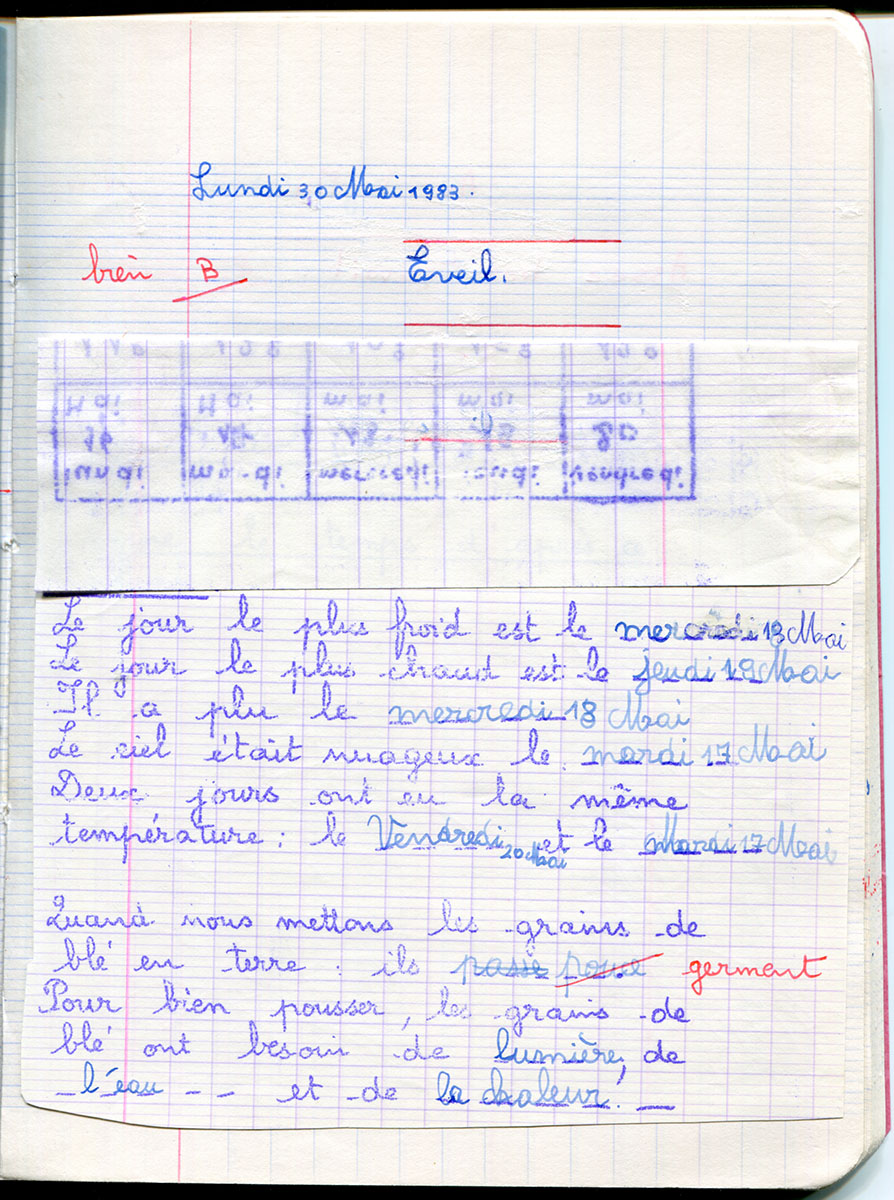 Lundi 30 Mai 1983.
bien B Eveil.
Mai Mai mai mai mai
16 17 18 19 20
lundi mardi mercredi jeudi vendredi
Le jour le plus froid est le mercredi 18 Mai
Le jour le plus chaud est le jeudi 19 Mai
Il a plu le mercredi 18 Mai
Le ciel était nuageux le mardi 17 Mai
Deux jours ont eu la même
température : le Vendredi 20 Mai et le Mardi 17 Mai
Quand nous mettons les grains de
blé en terre : ils germent
Pour bien pousser, les grains de
blé ont besoin de lumière, de
l'eau et de la chaleur.